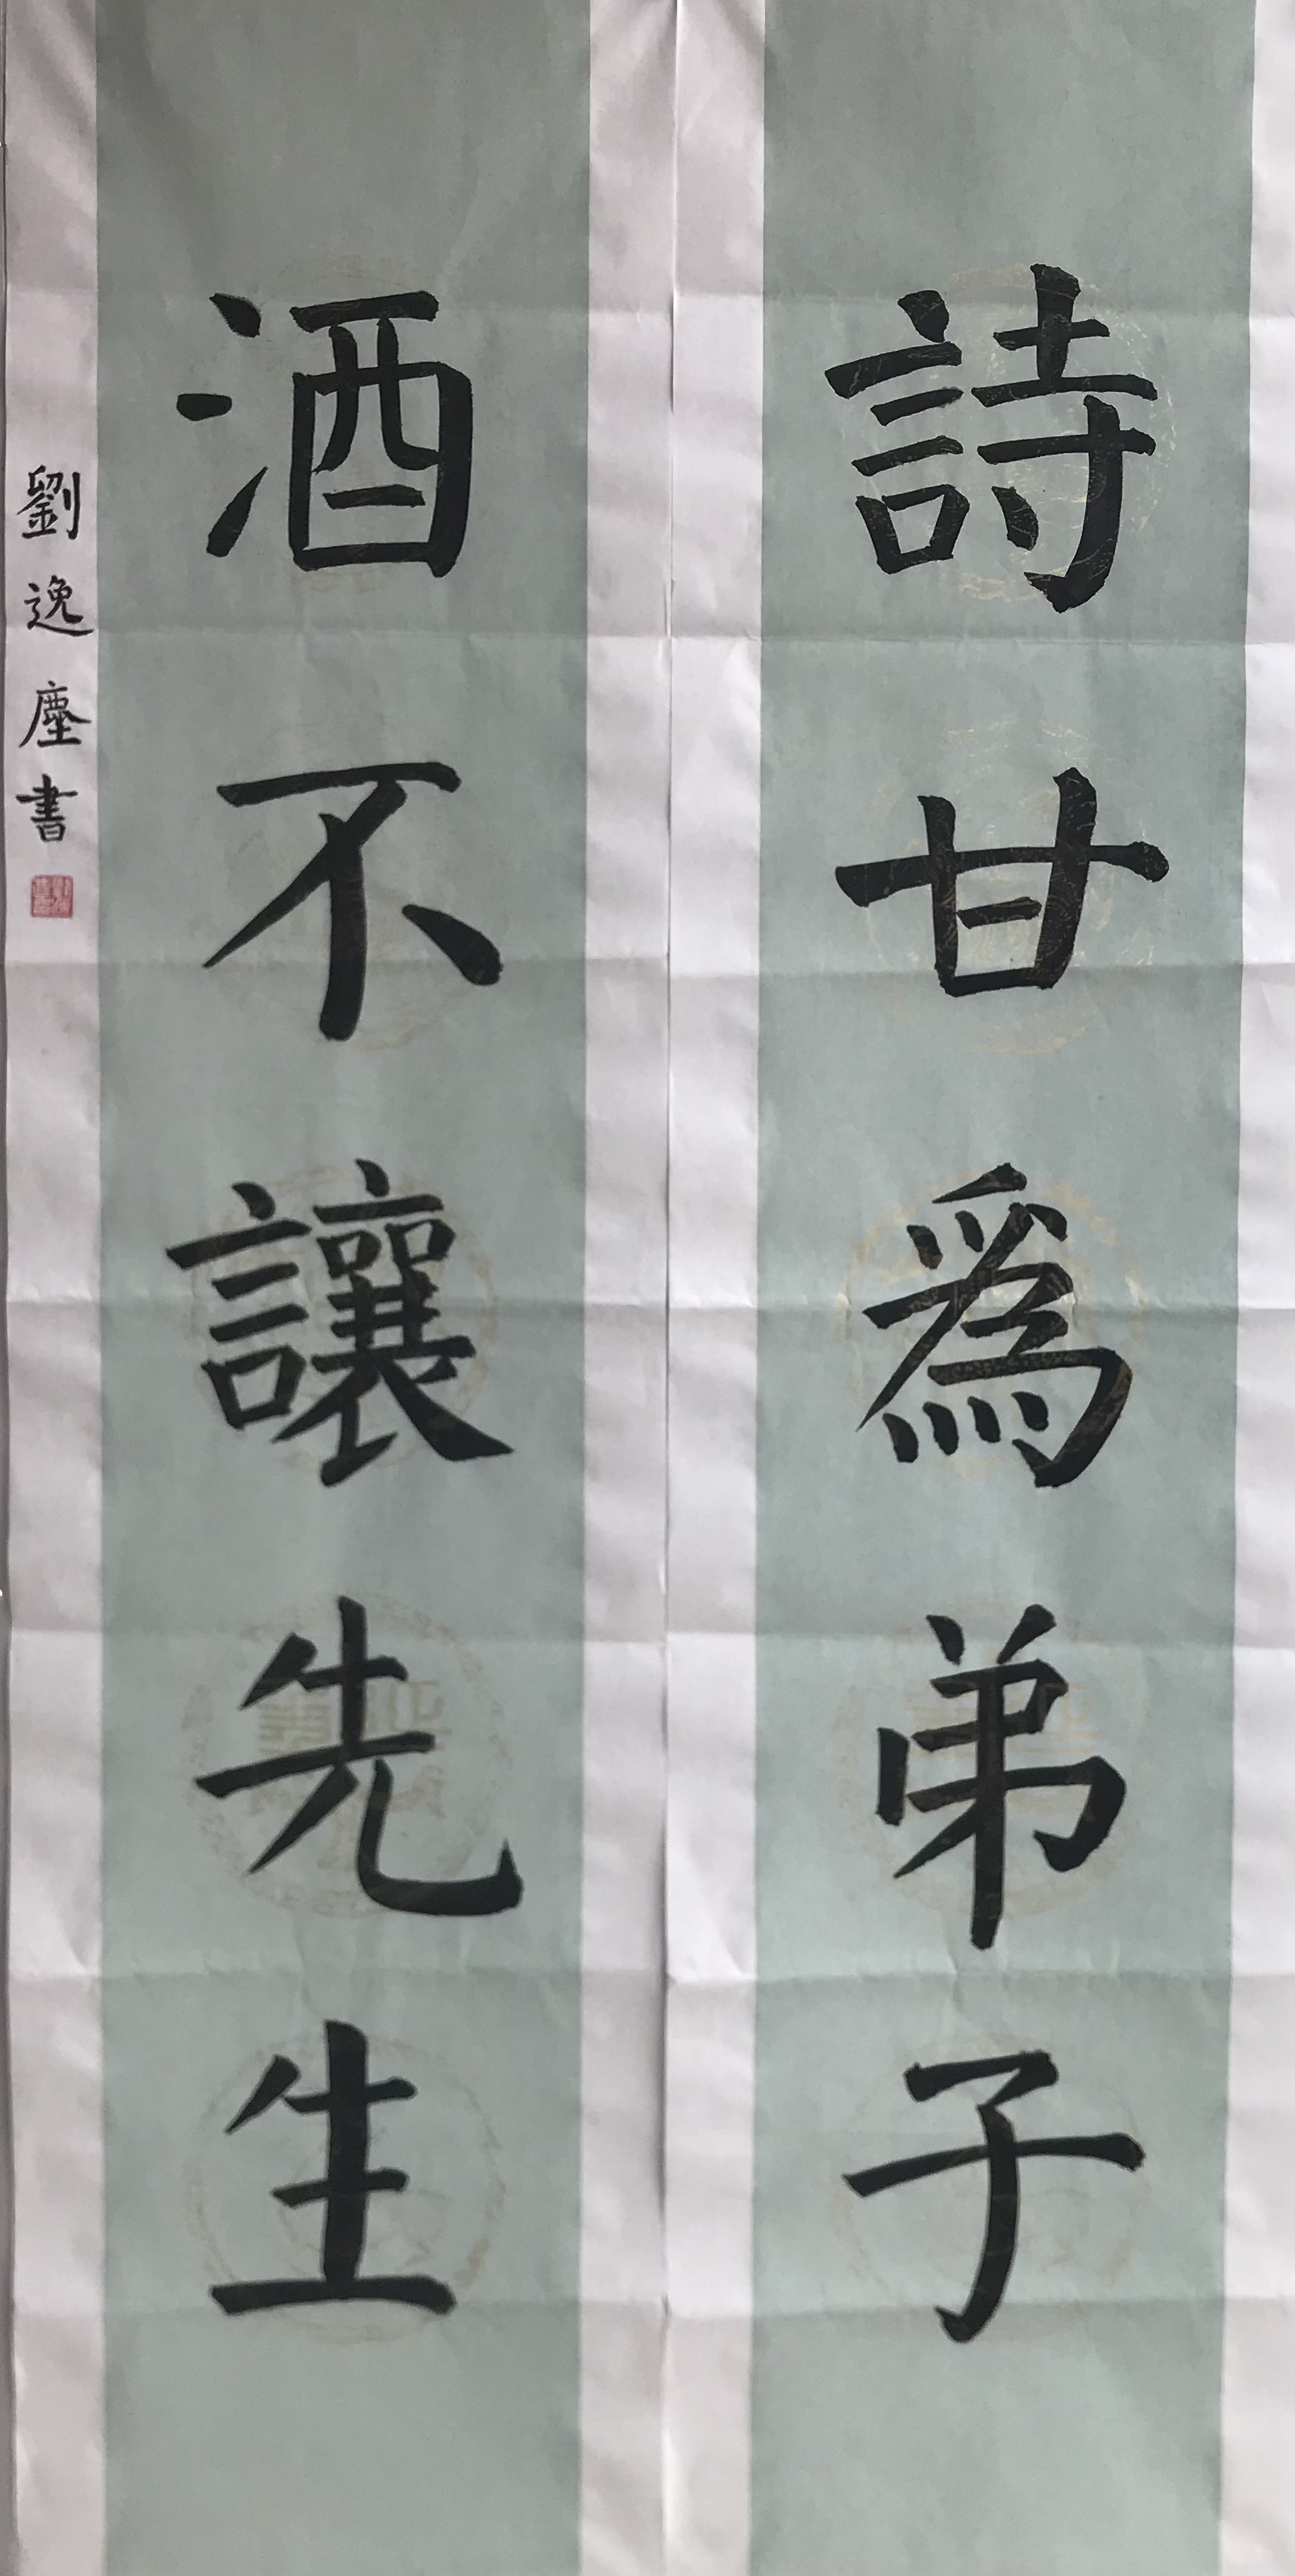 詩甘爲弟子
酒不讓先生
劉逸塵書